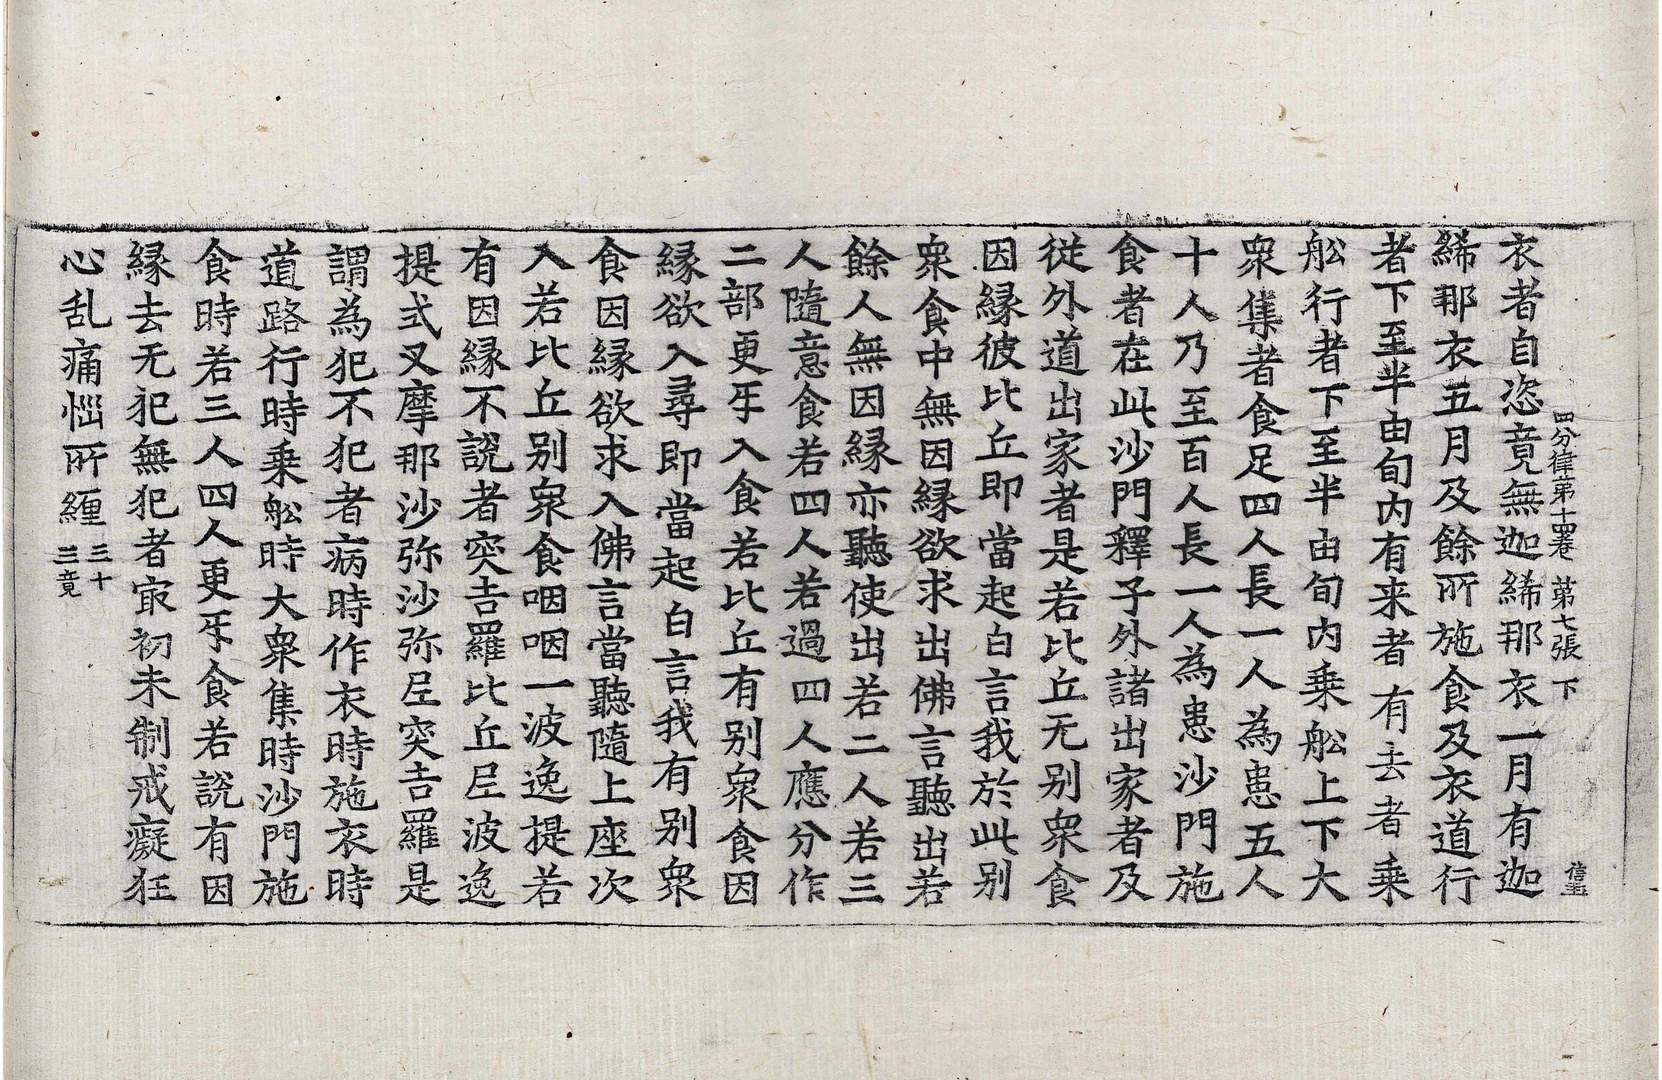 四分律第十四卷 第七張 下
衣者自恣竟無迦絺那衣一月有迦
絺那衣五月及餘所施食及衣道行
者下至半由旬内有来者有去者乗
舩行者下至半由旬内乗舩上下大
衆集者食足四人長一人為患五人
十人乃至百人長一人為患沙門施
食者在此沙門釋子外諸出家者及
従外道出家者是若比丘无别衆食
因縁彼比丘即當起白言我於此别
衆食中無因縁欲求出佛言聽出若
餘人無因縁亦聽使出若二人若三
人隨意食若四人若過四人應分作
二部更牙入食若比丘有别衆食因
縁欲入尋即當起白言我有别衆
食因縁欲求入佛言當聽隨上座次
入若比丘别衆食咽咽一波逸提若
有因縁不說者突吉羅比丘尼波逸
提式叉摩那沙弥沙弥尼突吉羅是
謂為犯不犯者病時作衣時施衣時
道路行時乗舩時大衆集時沙門施
食時若三人四人更牙食若說有因
縁去无犯無犯者㝡初未制戒癡狂
心乱痛惱所纏 三十三竟